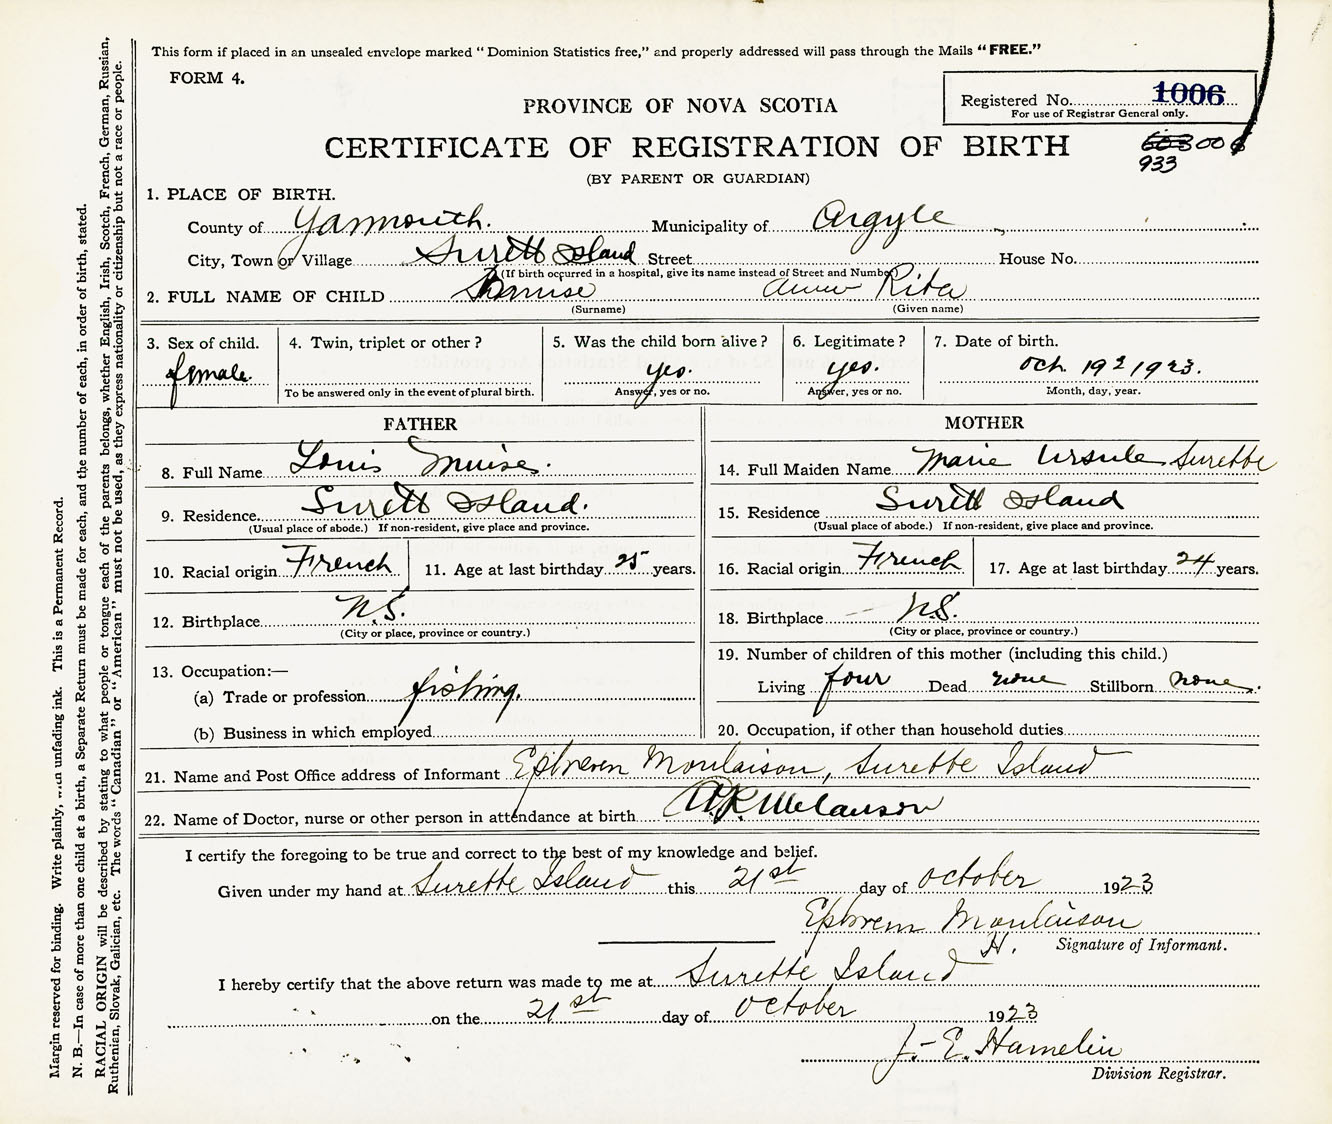 This form if placed in an unsealed envelope marked "Dominion Statistics free," and properly addressed will pass through the Mails "FREE."
FORM 4.
Registered No. 1006
For use of Registrar General only.
PROVINCE OF NOVA SCOTIA
CERTIFICATE OF REGISTRATION OF BIRTH
933
(BY PARENT OR GUARDIAN)
1. PLACE OF BIRTH.
County of Yarmouth. Municipality of Argyle
City, Town or Village Surett Island Street House No.
(If birth occurred in a hospital, give its name instead of Street and Number)
2. FULL NAME OF CHILD Muise Rita
(Surname) (Given name)
3. Sex of child. 4. Twin, triplet or other? 5. Was the child born alive? 6. Legitimate? 7. Date of birth.
female. yes. yes. Oct. 19 1923.
To be answered only in the event of plural birth. Answer, yes or no. Answer, yes or no. Month, day, year.
FATHER
8. Full Name Louis Muise.
9. Residence Surett Island.
(Usual place of abode.) If non-resident, give place and province.
10. Racial origin French 11. Age at last birthday 25 years.
12. Birthplace N.S.
(City or place, province or country.)
13. Occupation:—
(a) Trade or profession fishing.
(b) Business in which employed
MOTHER
14. Full Maiden Name Marie Ursule Surette
15. Residence Surett Island
(Usual place of abode.) If non-resident, give place and province.
16. Racial origin French 17. Age at last birthday 24 years.
18. Birthplace N.S.
(City or place, province or country.)
19. Number of children of this mother (including this child.)
Living four Dead none Stillborn none.
20. Occupation, if other than household duties
21. Name and Post Office address of Informant Ephrem Moulaison, Surette Island
22. Name of Doctor, nurse or other person in attendance at birth A.R. Melanson
I certify the foregoing to be true and correct to the best of my knowledge and belief.
Given under my hand at Surette Island this 21st day of October 1923
Ephrem Moulaison
H. Signature of Informant.
I hereby certify that the above return was made to me at Surette Island
on the 21st day of October 1923
J.-E. Hamelin
Division Registrar.
Margin reserved for binding. Write plainly, with unfading ink. This is a Permanent Record.
N. B.—In case of more than one child at a birth, a Separate Return must be made for each, and the number of each, in order of birth, stated.
RACIAL ORIGIN will be described by stating to what people or tongue each of the parents belongs, whether English, Irish, Scotch, French, German, Russian,
Ruthenian, Slovak, Galician, etc. The words "Canadian" or "American" must not be used, as they express nationality or citizenship but not a race or people.